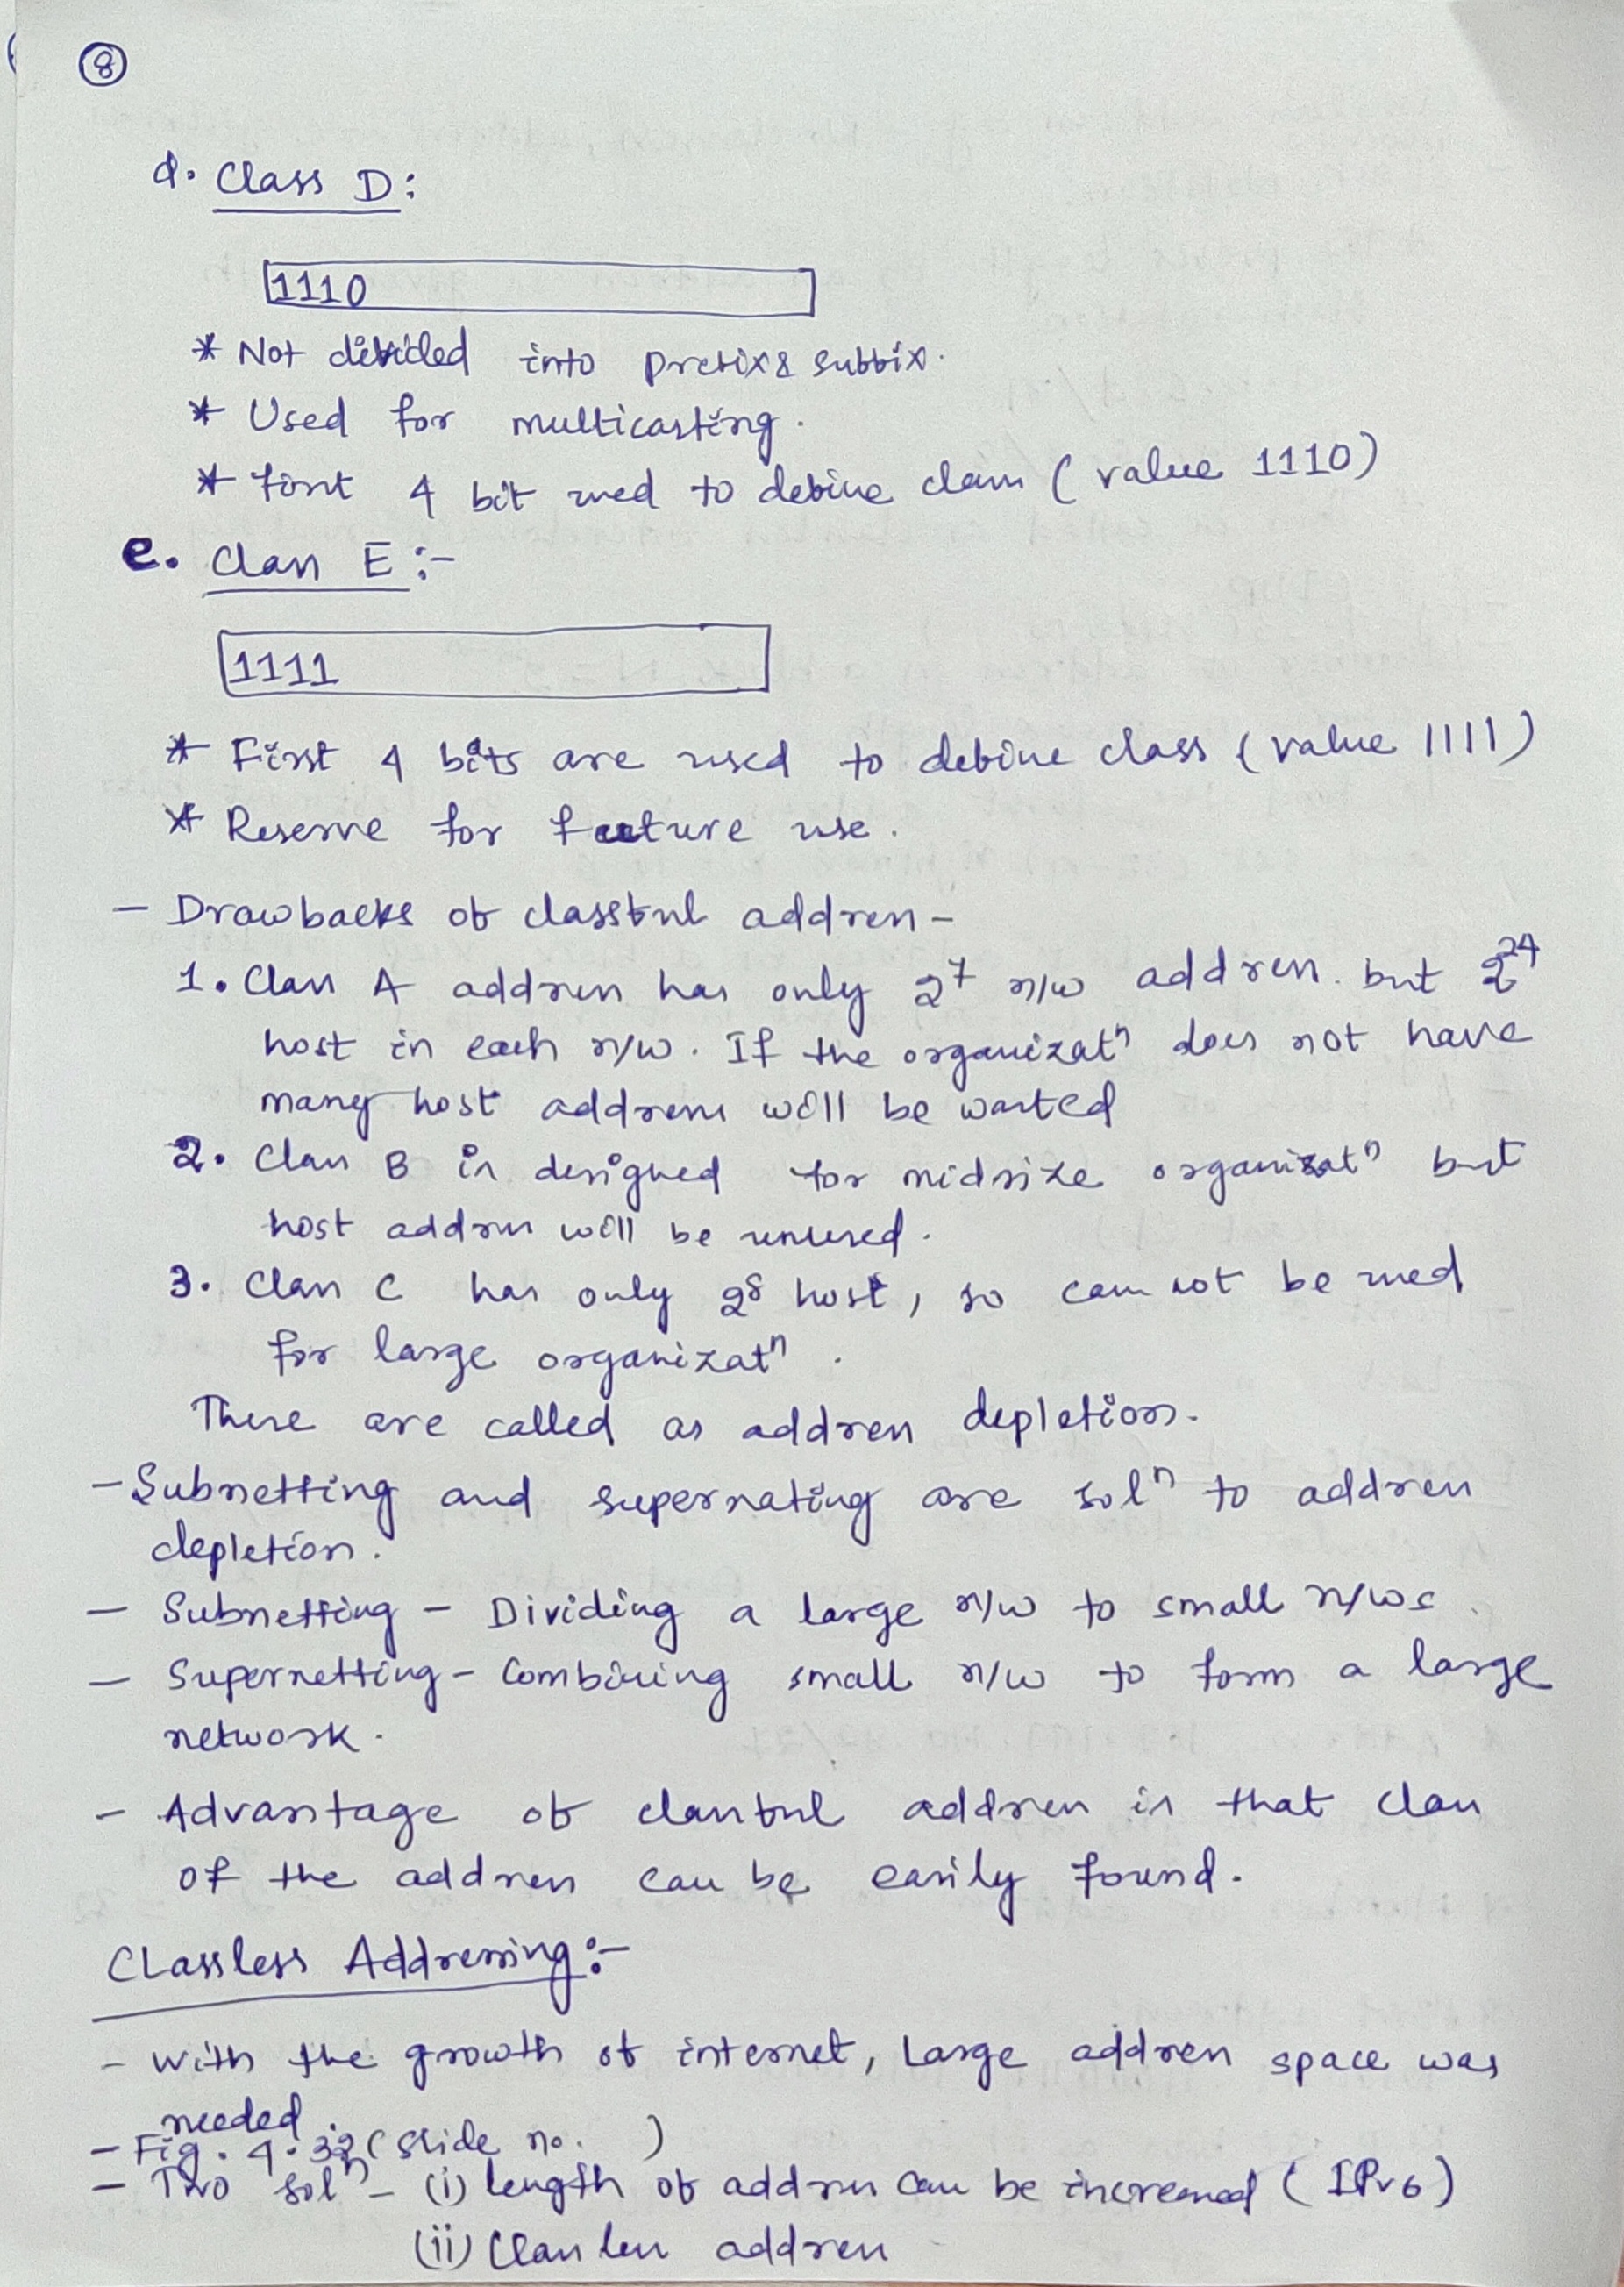 8
d. Class D:
1110
* Not divided into prefix & suffix.
* Used for multicasting.
* First 4 bit used to define class ( value 1110)
e. Class E :-
1111
* First 4 bits are used to define class ( value 1111)
* Reserve for future use.
- Drawbacks of classful address -
1. Class A address has only 2^7 n/w address. but 2^24
host in each n/w. If the organizatⁿ does not have
many host address will be wasted
2. Class B is designed for midsize organizatⁿ but
host address will be unused.
3. Class C has only 2^8 host, so can not be used
for large organizatⁿ.
These are called as address depletion.
- Subnetting and supernating are solⁿ to address
depletion.
- Subnetting - Dividing a large n/w to small n/ws.
- Supernetting - Combining small n/w to form a large
network.
- Advantage of classful address is that class
of the address can be easily found.
Classless Addressing :-
- With the growth of internet, Large address space was
needed.
- Fig. 4.32 ( Slide no. )
- Two solⁿ - (i) length of address can be increased ( IPv6)
(ii) Class less address